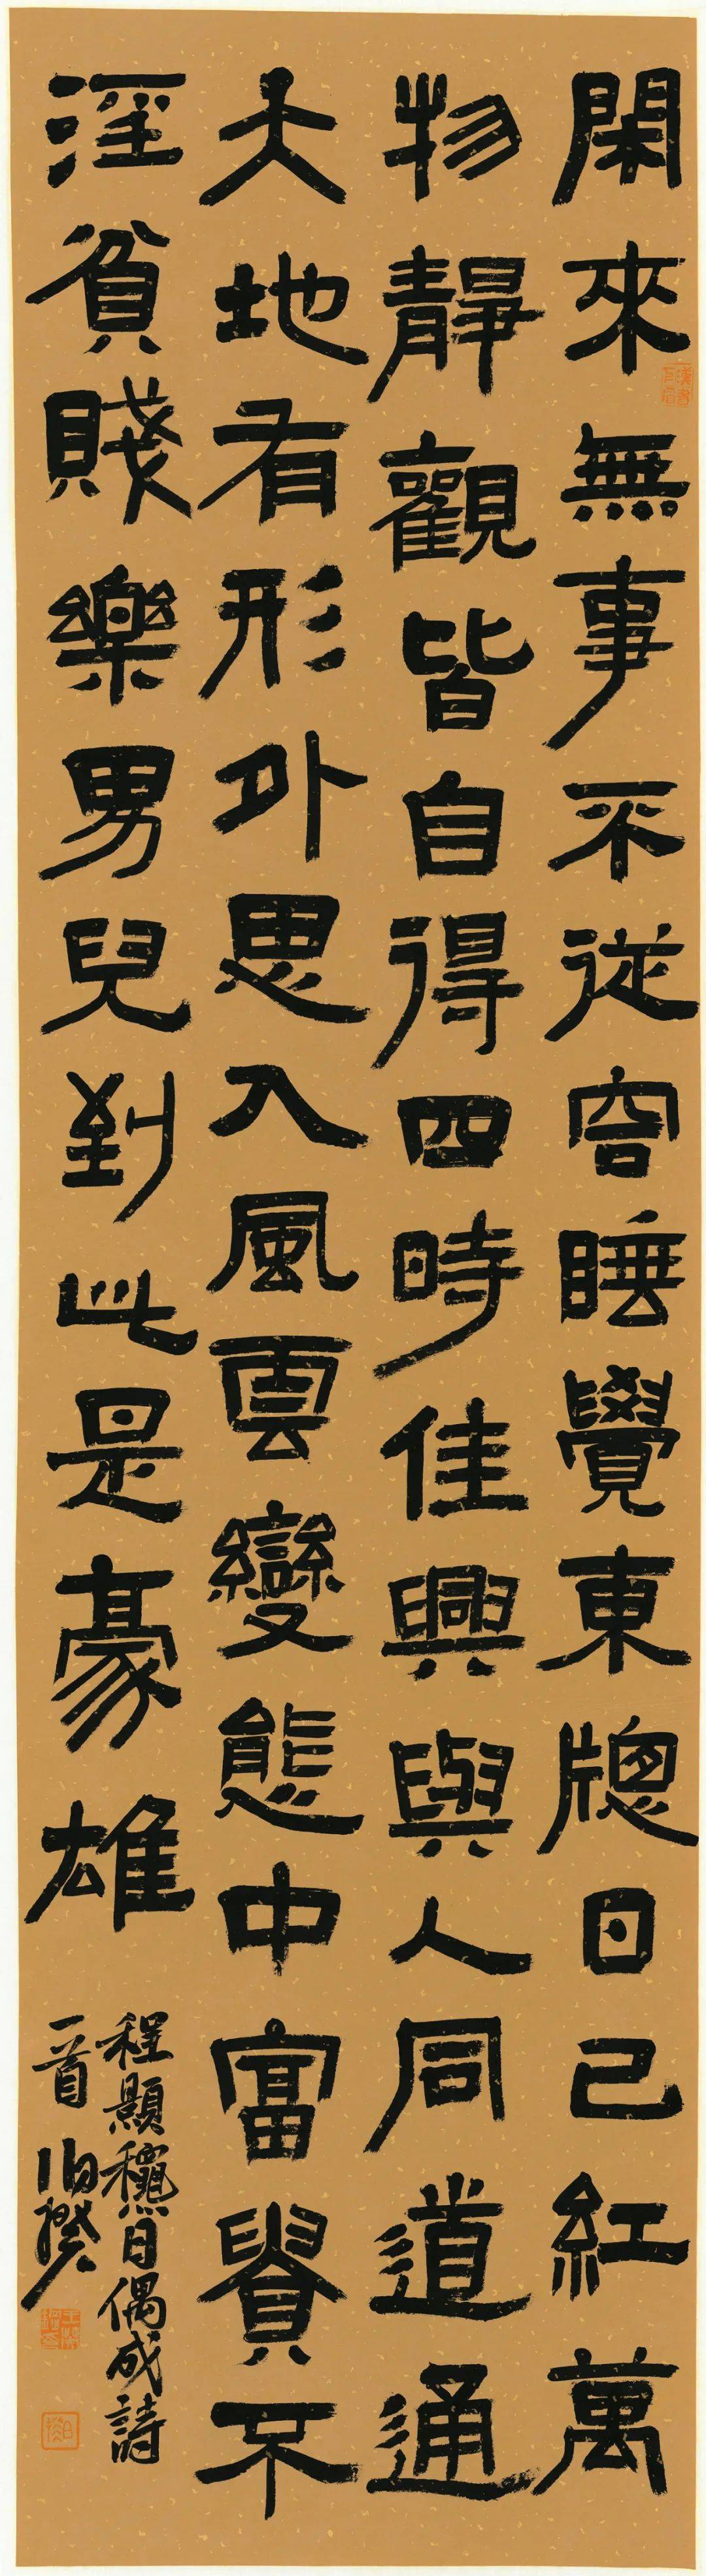 閑來無事不從容睡覺東牕日已紅萬
物靜觀皆自得四時佳興與人同道通
天地有形外思入風雲變態中富貴不
淫貧賤樂男兒到此是豪雄
程顥龝日偶成詩
一首 伯